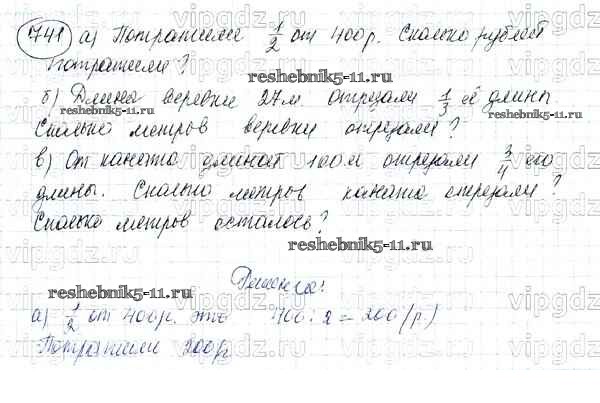 741 а) Потратили 1/2 от 400р. Сколько рублей
потратили?
reshebnik5-11.ru
б) Длина веревки 27м отрезали 1/3 её длины
reshebnik5-11.ru
Сколько метров веревки отрезали?
в) От каната длиной 100м отрезали 3/4 его
длины. Сколько метров каната отрезали?
Сколько метров осталось?
reshebnik5-11.ru
Решение:
reshebnik5-11.ru
а) 1/2 от 400р. это 400:2=200(р.)
Потратили 200р
vipgdz.ru